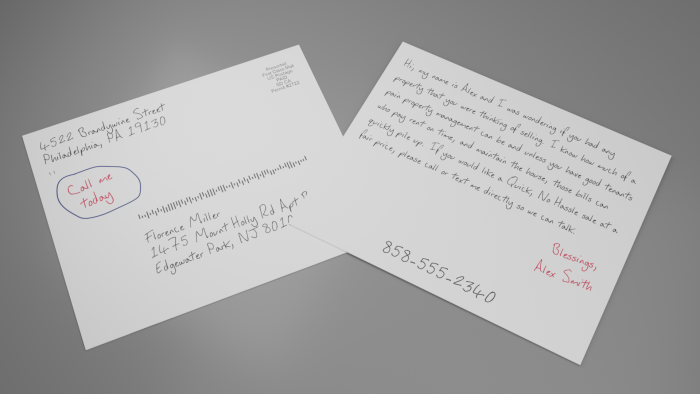 4522 Brandywine Street
Philadelphia, PA 19130
Call me
today
Presorted
First Class Mail
US Postage
PAID
Florence Miller
1475 Mount Holly Rd Apt
Edgewater Park, NJ
Hi, my name is Alex and I was wondering if you had any
property that you were thinking of selling. I know how much of a
pain property management can be and unless you have good tenants
who pay rent on time, and maintain the house, those bills can
quickly pile up. If you would like a Quick, No Hassle sale at a
fair price, please call or text me directly so we can talk.
Blessings,
Alex Smith
858-555-2340